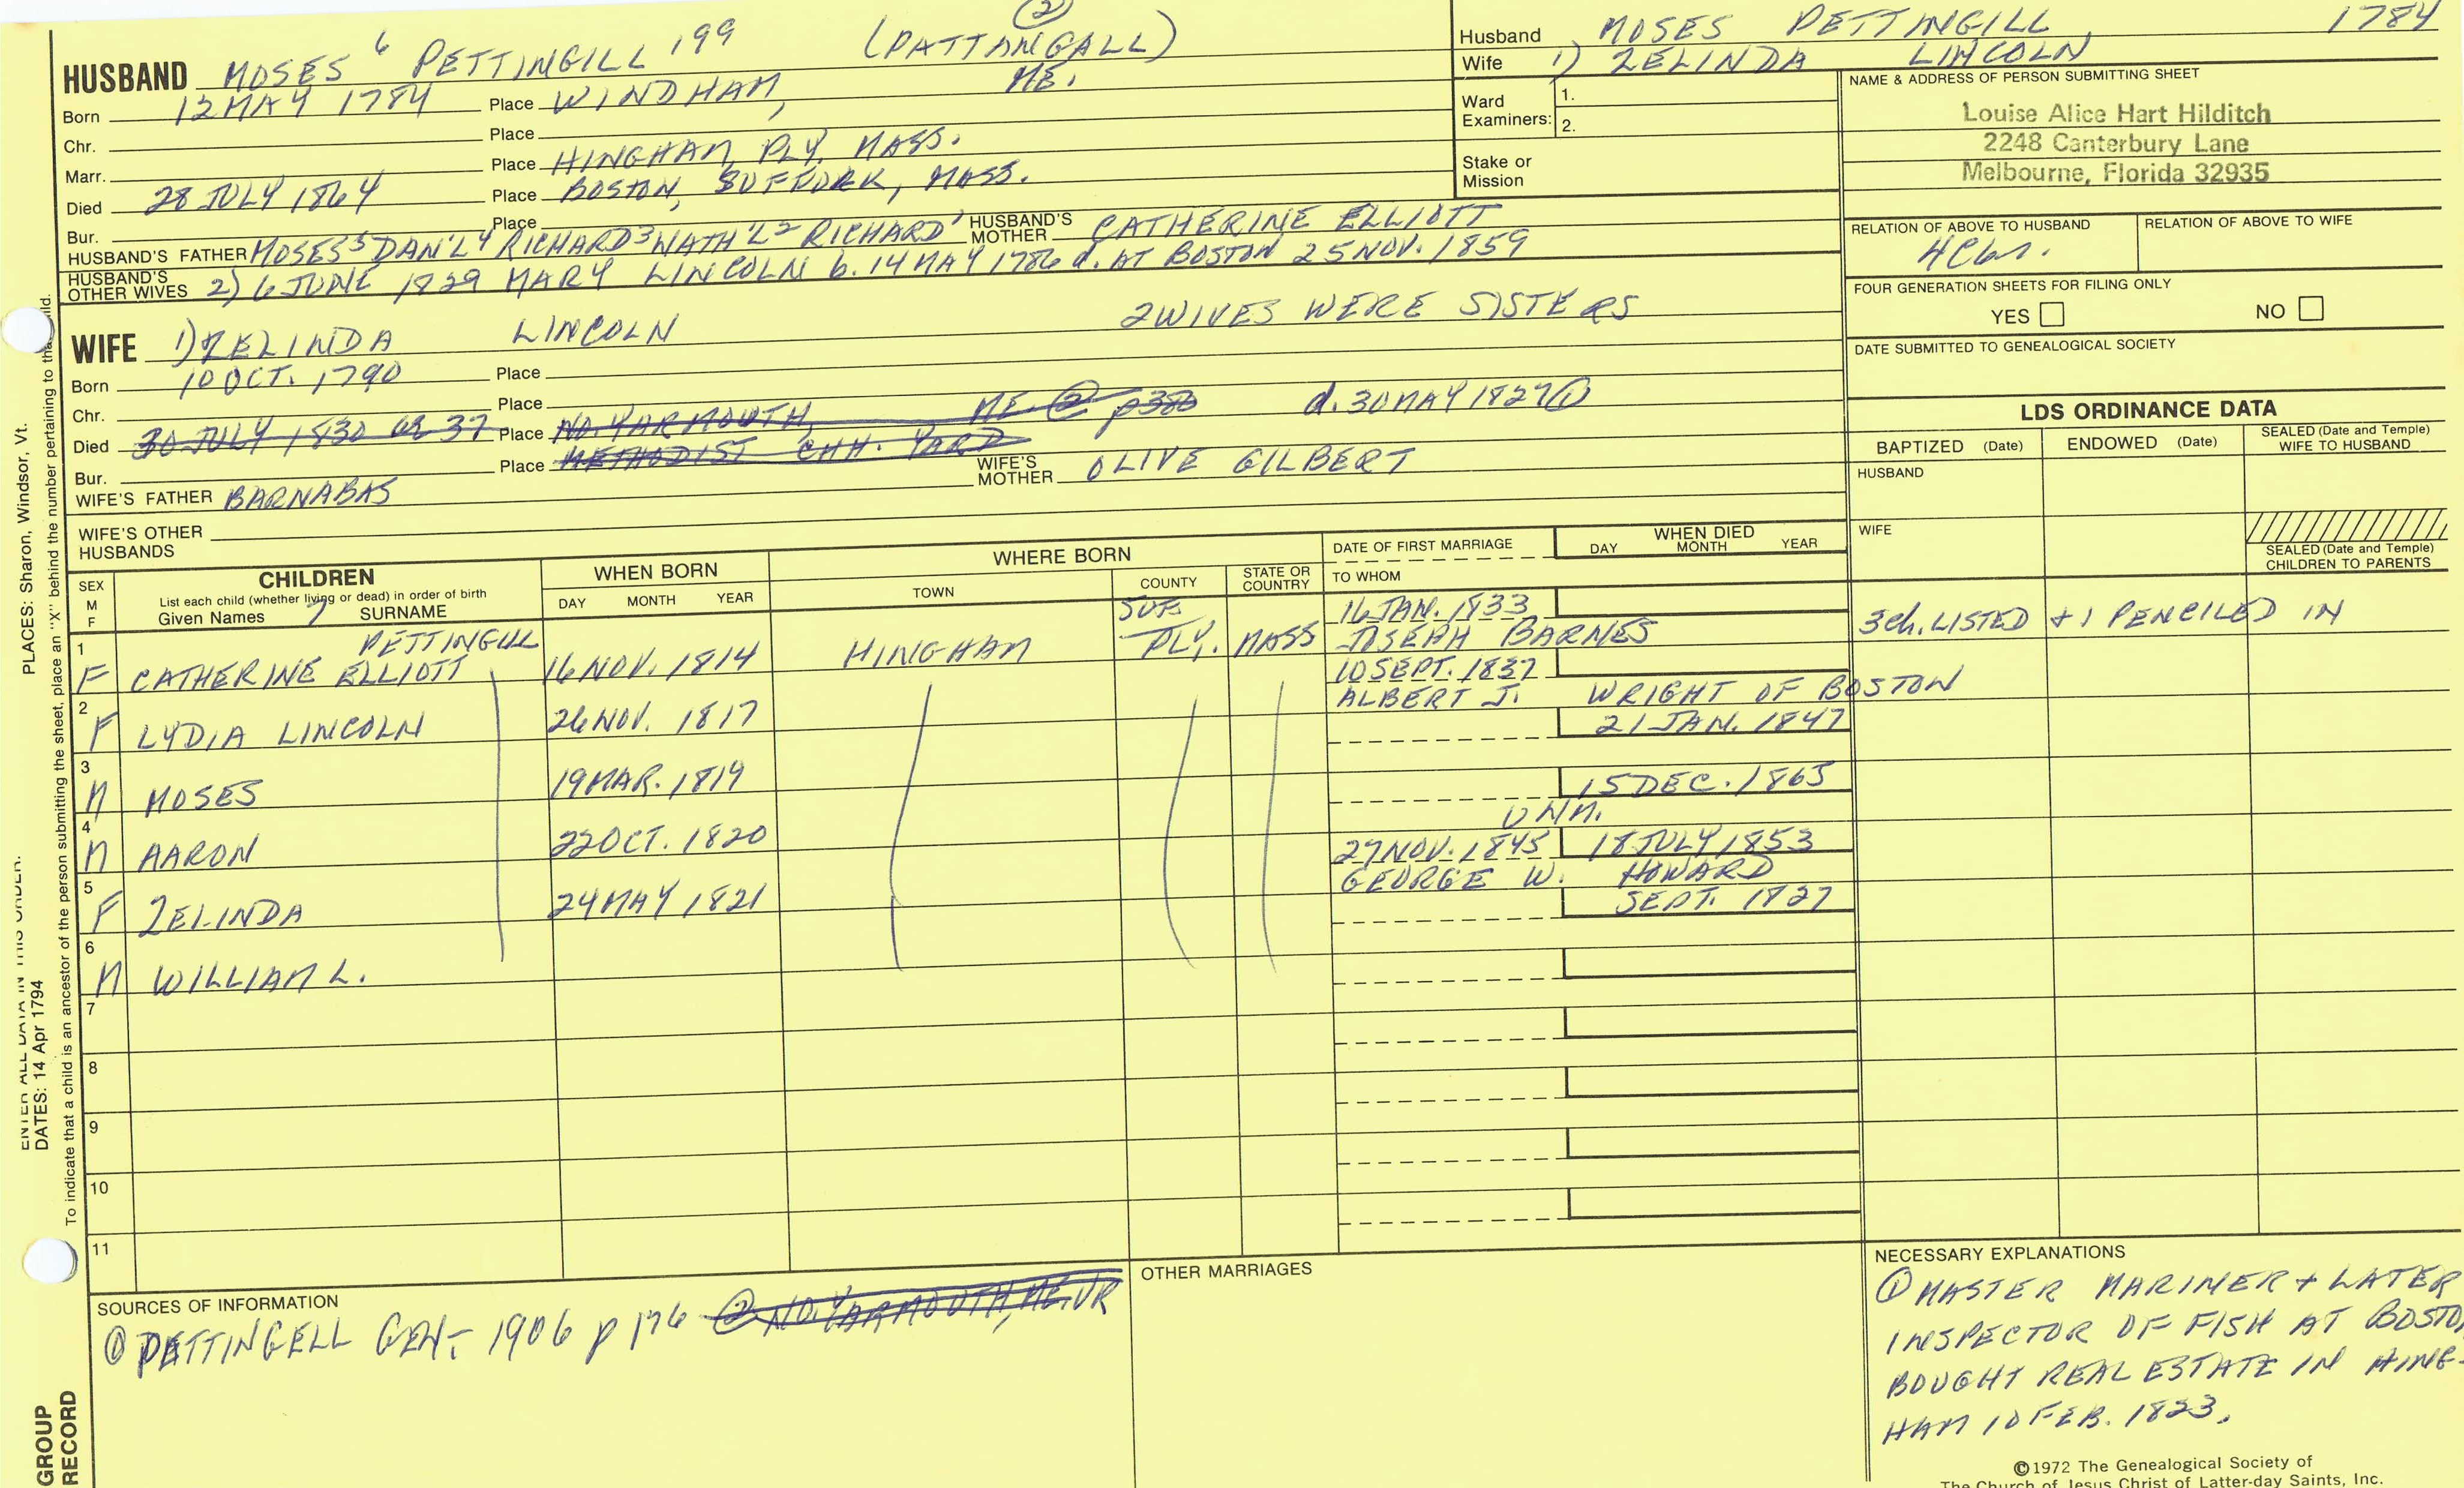 HUSBAND MOSES 6 PETTINGILL 199 (PATTANGALL) ②
Born 12 MAY 1784 Place WINDHAM, ME.
Chr. Place
Marr. Place HINGHAM, PLY. MASS.
Died 28 JULY 1864 Place BOSTON, SUFFORK, MASS.
Bur. Place
HUSBAND'S FATHER MOSES5 DAN'L4 RICHARD3 NATH'L2 RICHARD' HUSBAND'S MOTHER CATHERINE ELLIOTT
HUSBAND'S OTHER WIVES 2) 6 JUNE 1829 MARY LINCOLN b. 14 MAY 1786 d. AT BOSTON 25 NOV. 1859
2 WIVES WERE SISTERS
WIFE 1) ZELINDA LINCOLN
Born 10 OCT. 1790 Place
Chr. Place
Died 30 JULY 1830 OR 37 Place NO. YARMOUTH, ME. ② p380 d. 30 MAY 1827 ①
Bur. Place METHODIST CHH. YARD
WIFE'S FATHER BARNABAS WIFE'S MOTHER OLIVE GILBERT
WIFE'S OTHER HUSBANDS
Husband MOSES PETTINGILL 1784
Wife 1) ZELINDA LINCOLN
Ward Examiners: 1.
2.
Stake or Mission
NAME & ADDRESS OF PERSON SUBMITTING SHEET
Louise Alice Hart Hilditch
2248 Canterbury Lane
Melbourne, Florida 32935
RELATION OF ABOVE TO HUSBAND RELATION OF ABOVE TO WIFE
FOUR GENERATION SHEETS FOR FILING ONLY
YES NO
DATE SUBMITTED TO GENEALOGICAL SOCIETY
LDS ORDINANCE DATA
BAPTIZED (Date) ENDOWED (Date) SEALED (Date and Temple) WIFE TO HUSBAND
HUSBAND
WIFE
SEALED (Date and Temple) CHILDREN TO PARENTS
3 ch. LISTED + 1 PENCILED IN
SEX M F
CHILDREN
List each child (whether living or dead) in order of birth
Given Names 7 SURNAME
WHEN BORN
DAY MONTH YEAR
WHERE BORN
TOWN COUNTY STATE OR COUNTRY
DATE OF FIRST MARRIAGE
TO WHOM
WHEN DIED
DAY MONTH YEAR
SUF. 16 JAN. 1833
1 F CATHERINE ELLIOTT PETTINGILL 16 NOV. 1814 HINGHAM PLY. MASS JOSEPH BARNES
10 SEPT. 1837
2 F LYDIA LINCOLN 26 NOV. 1817 ALBERT J. WRIGHT OF BOSTON
21 JAN. 1847
3 M MOSES 19 MAR. 1819
15 DEC. 1865
4 M AARON 22 OCT. 1820 UNM.
27 NOV. 1845 18 JULY 1853
5 F ZELINDA 24 MAY 1821 GEORGE W. HOWARD
SEPT. 1827
6 M WILLIAM L.
7
8
9
10
11
SOURCES OF INFORMATION
① PETTINGELL GEN.- 1906 p 176 ② NO. YARMOUTH, ME. VR
OTHER MARRIAGES
NECESSARY EXPLANATIONS
① MASTER MARINER + LATER
INSPECTOR OF FISH AT BOSTO
BOUGHT REAL ESTATE IN HING-
HAM 10 FEB. 1823.
©1972 The Genealogical Society of
The Church of Jesus Christ of Latter-day Saints, Inc.
PLACES: Sharon, Windsor, Vt.
ENTER ALL DATA IN THIS ORDER:
DATES: 14 Apr 1794
To indicate that a child is an ancestor of the person submitting the sheet, place an "X" behind the number pertaining to that child.
GROUP
RECORD